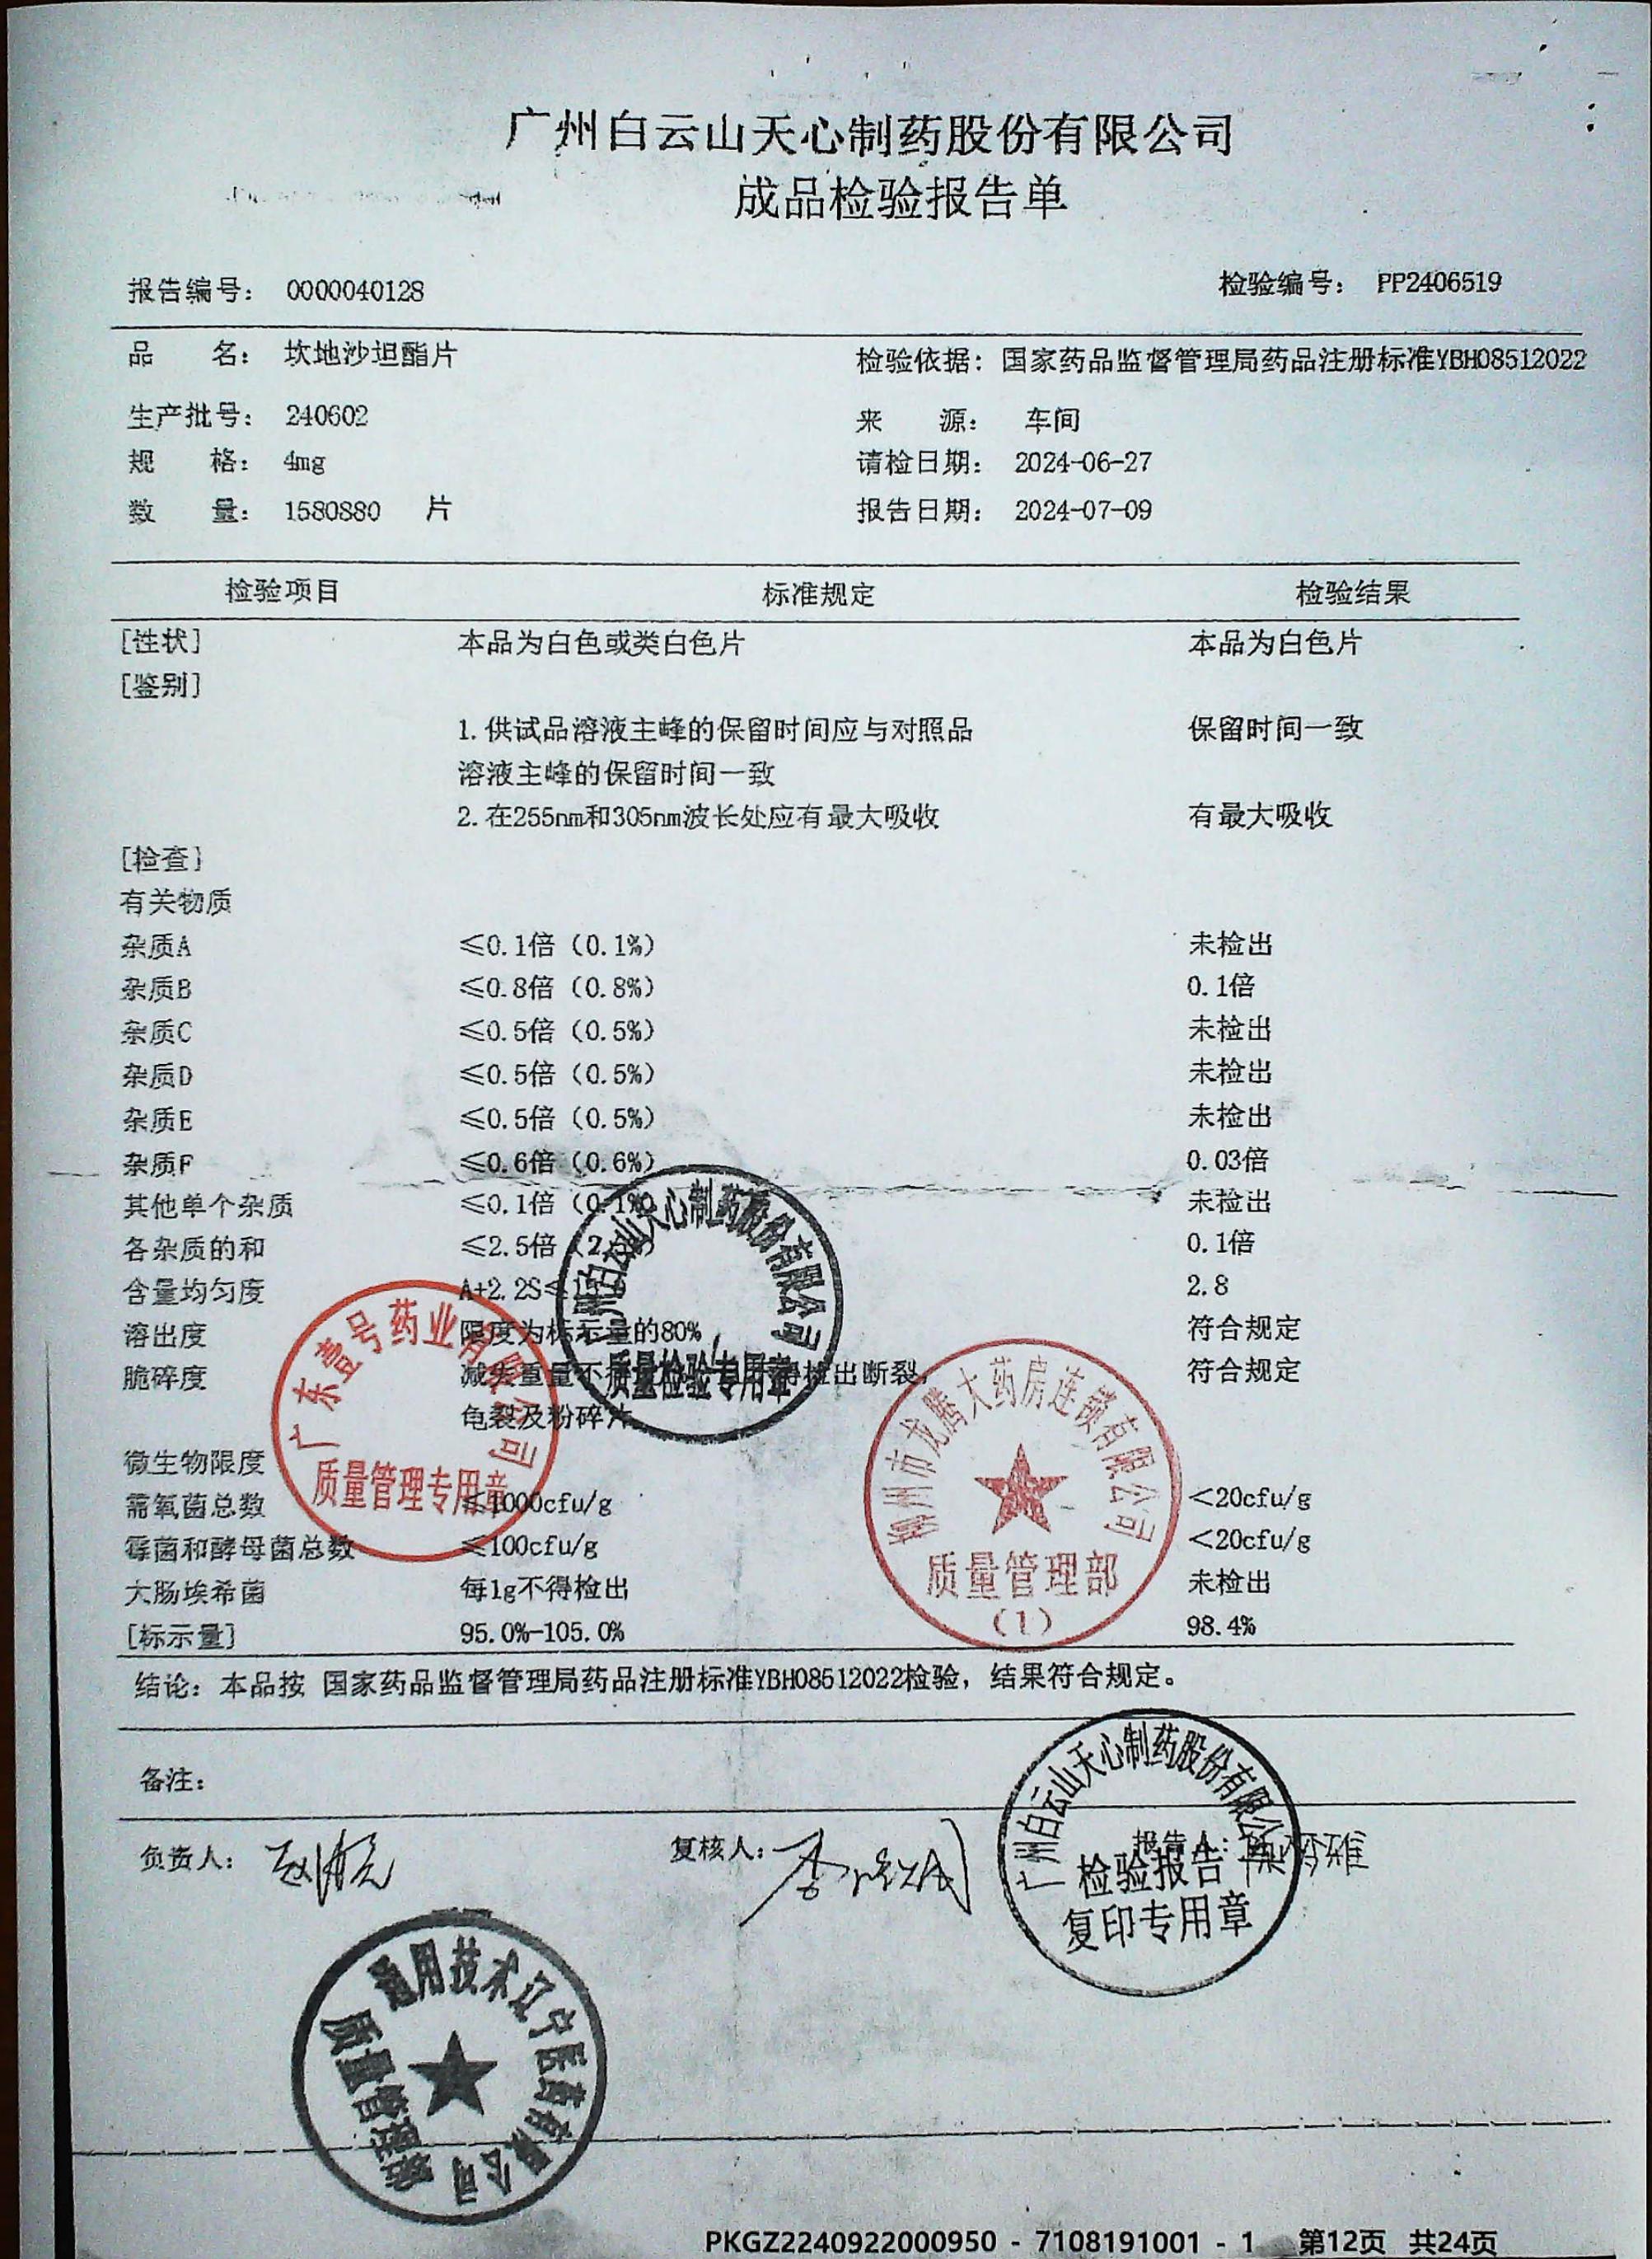 广州白云山天心制药股份有限公司
成品检验报告单
报告编号： 0000040128 检验编号： PP2406519
品 名： 坎地沙坦酯片 检验依据：国家药品监督管理局药品注册标准YBH08512022
生产批号： 240602 来 源： 车间
规 格： 4mg 请检日期： 2024-06-27
数 量： 1580880 片 报告日期： 2024-07-09
检验项目 标准规定 检验结果
[性状] 本品为白色或类白色片 本品为白色片
[鉴别]
1.供试品溶液主峰的保留时间应与对照品 保留时间一致
溶液主峰的保留时间一致
2.在255nm和305nm波长处应有最大吸收 有最大吸收
[检查]
有关物质
杂质A ≤0.1倍（0.1%） 未检出
杂质B ≤0.8倍（0.8%） 0.1倍
杂质C ≤0.5倍（0.5%） 未检出
杂质D ≤0.5倍（0.5%） 未检出
杂质E ≤0.5倍（0.5%） 未检出
杂质F ≤0.6倍（0.6%） 0.03倍
其他单个杂质 ≤0.1倍（0.1%） 未检出
各杂质的和 ≤2.5倍 0.1倍
含量均匀度 A+2.2S≤ 2.8
溶出度 限度为标示量的80% 符合规定
脆碎度 减失重量不得 得检出断裂， 符合规定
龟裂及粉碎片
微生物限度
需氧菌总数 ≤1000cfu/g <20cfu/g
霉菌和酵母菌总数 ≤100cfu/g <20cfu/g
大肠埃希菌 每1g不得检出 未检出
[标示量] 95.0%-105.0% 98.4%
结论：本品按 国家药品监督管理局药品注册标准YBH08512022检验，结果符合规定。
备注：
负责人： 复核人： 报告人：
广州白云山天心制药股份有限公司
质量检验专用章
广东壹号药业有限公司
质量管理专用章
柳州市龙腾大药房连锁有限公司
质量管理部
（1）
广州白云山天心制药股份有限公司
检验报告
复印专用章
通用技术辽宁医药有限公司
质量管理部
PKGZ2240922000950 - 7108191001 - 1 第12页 共24页